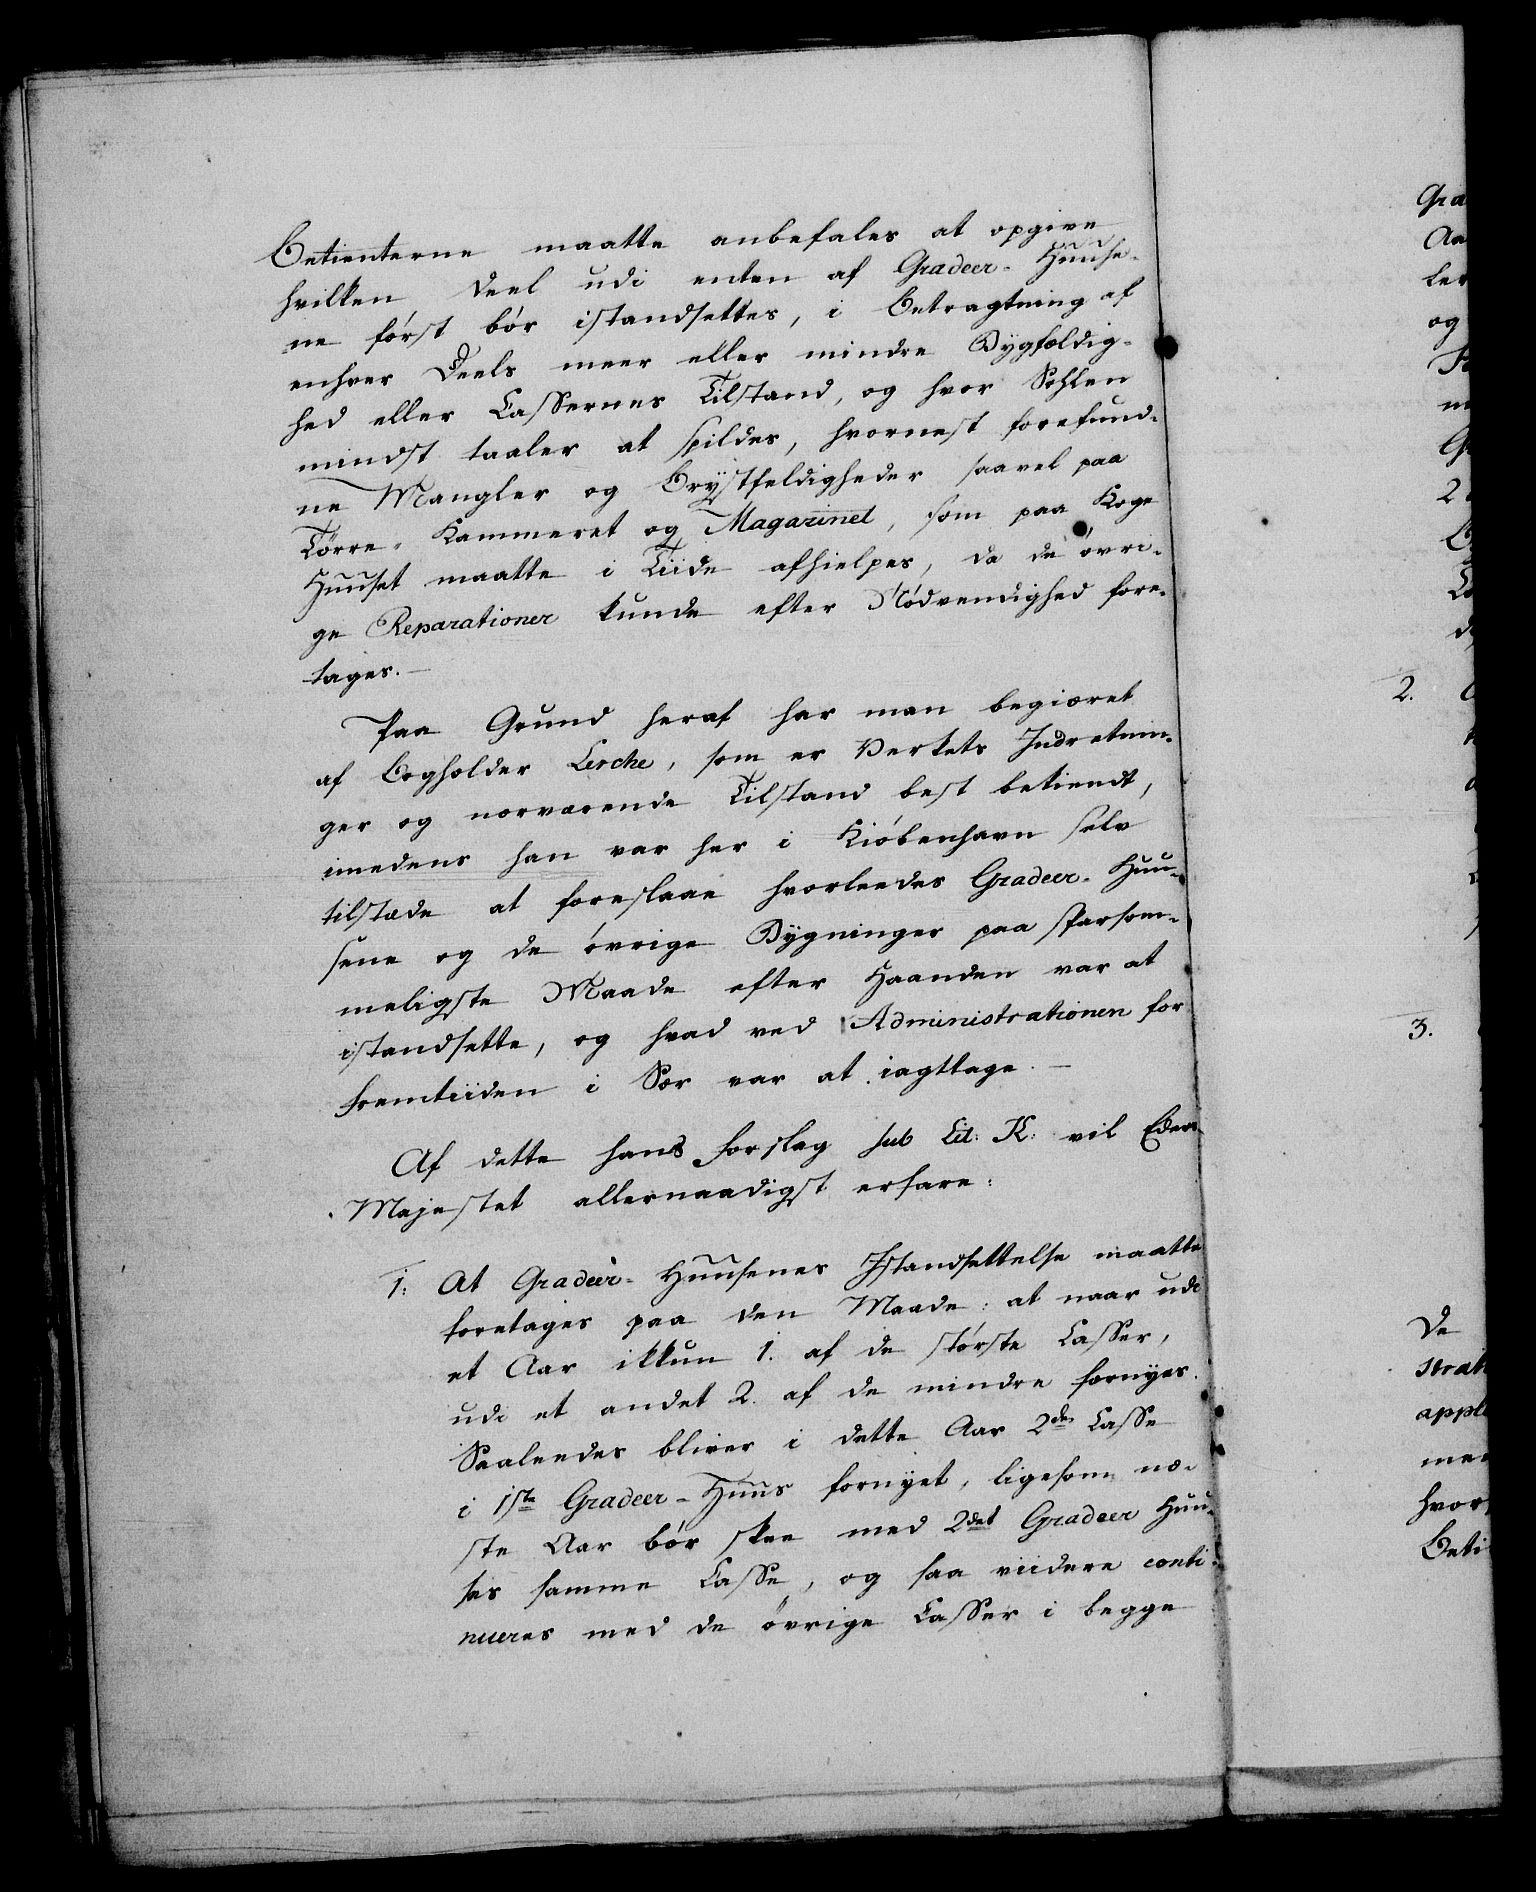 Betienterne maatte anbefales at opgive
hvilken Deel udi enten af Gradeer-Huuse-
ne först bör istandsettes, i Betragtning af
enhver Deels meer eller mindre Bygfældig-
hed eller Cassernes Tilstand, og hvor Sohlen
mindst taaler at spildes, hvornest forefund-
ne Mangler og Bröstfeldigheder saavel paa
Törre-Kammeret og Magazinet, som paa Koge
Huuset maatte i Tiide afhielpes, da de övri-
ge Reparationer kunde efter Nödvendighed fore-
tages.-
Paa Grund heraf har man begiæret
af Bogholder Lerche, som er Verkets Indretnin-
ger og nærværende Tilstand best bekiendt,
imedens han var her i Kiöbenhavn selv
tilstæde at foreslaae hvorleedes Gradeer-Huu-
sene og de övrige Bygninger paa sparsom-
meligste Maade efter Haanden var at
istandsette, og hvad ved Administrationen for
Fremtiiden i Sær var at iagttage.-
Af dette hans Forslag sub Lit: K: vil Eders
Majestet allernaadigst erfare:
1: At Gradeer-Huusenes Istandsettelse maatte
foretages paa den Maade: at naar udi
et Aar ikkun 1. af de störste Casser,
udi et andet 2. af de mindre fornyes.
Saaleedes bliver i dette Aar 2den Casse
i 1ste Gradeer-Huus fornyet, ligesom næ-
ste Aar bör skee med 2det Gradeer Huu-
ses samme Casse, og saa viidere conti-
nueres med de övrige Casser i begge
Gra
Aa
ler
og
2
2.
3.
De
strat
appl
men
hvor
Beti